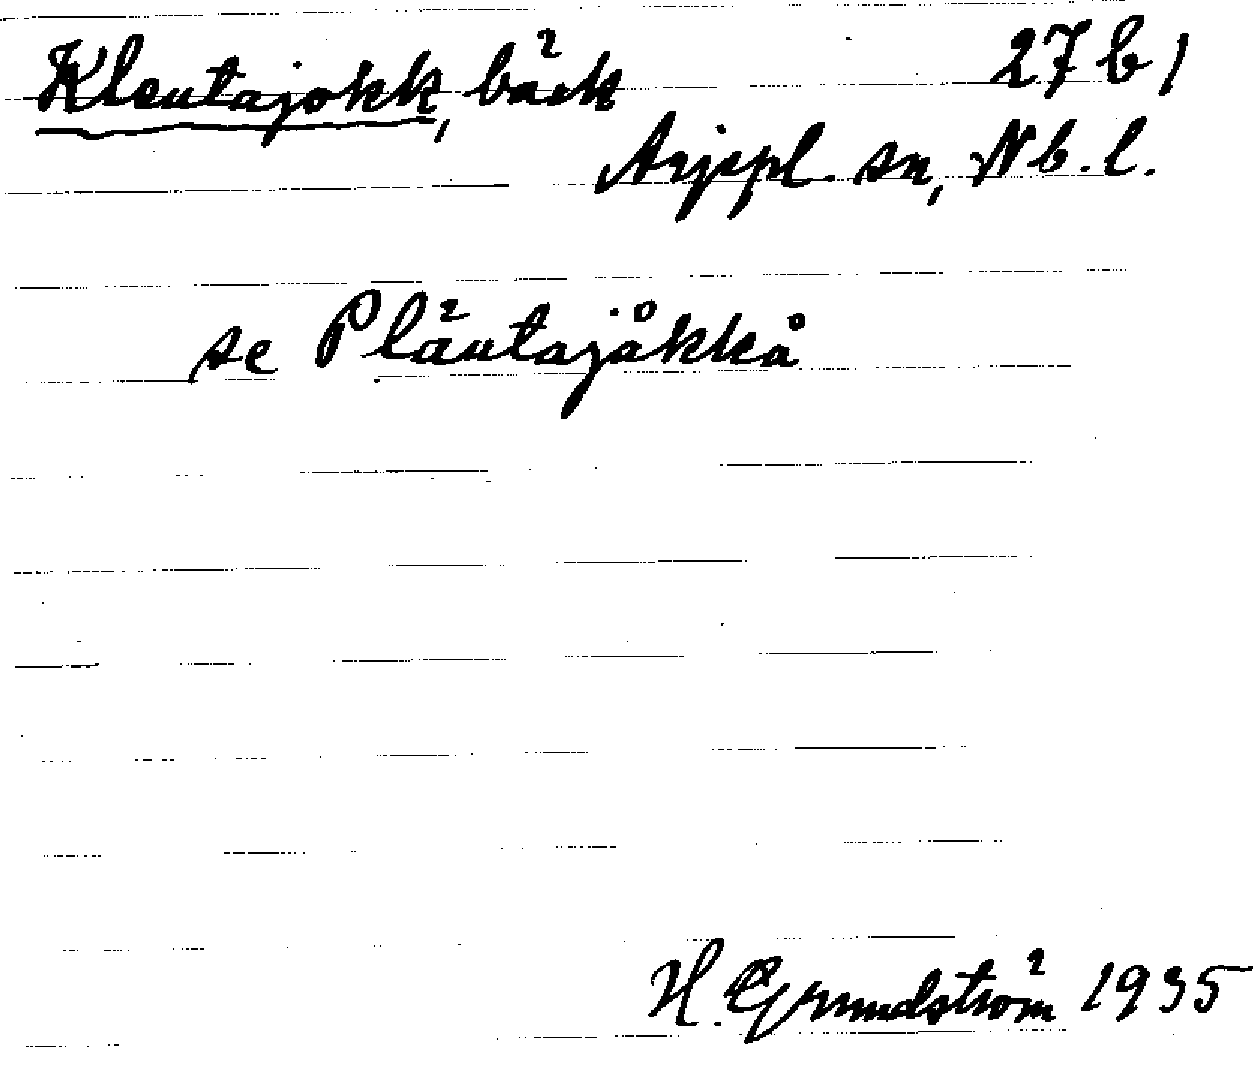 Kleutajokk, bäck 27 b 1
Arjepl. sn, Nb. l.
se Pläutajåkkå
H. Grundström 1935